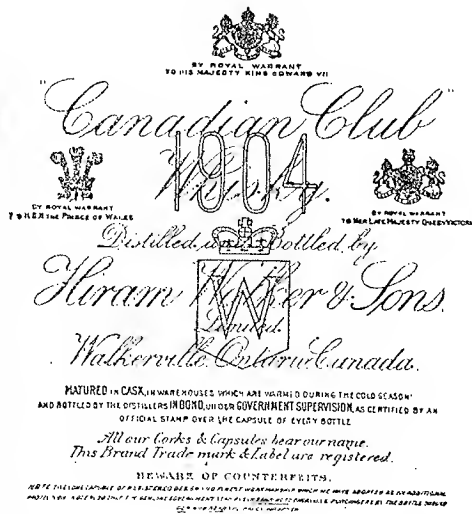 BY ROYAL WARRANT
TO HIS MAJESTY KING EDWARD VII
"Canadian Club"
1904
Whisky.
BY ROYAL WARRANT
TO H.R.H. THE PRINCE OF WALES
BY ROYAL WARRANT
TO HER LATE MAJESTY QUEEN VICTORIA
Distilled and Bottled by
Hiram Walker & Sons.
W
Limited.
Walkerville, Ontario, Canada.
MATURED IN CASK, IN WAREHOUSES WHICH ARE WARMED DURING THE COLD SEASON
AND BOTTLED BY THE DISTILLERS IN BOND, UNDER GOVERNMENT SUPERVISION, AS CERTIFIED BY AN
OFFICIAL STAMP OVER THE CAPSULE OF EVERY BOTTLE
All our Corks & Capsules bear our name.
This Brand Trade mark & Label are registered.
BEWARE OF COUNTERFEITS.